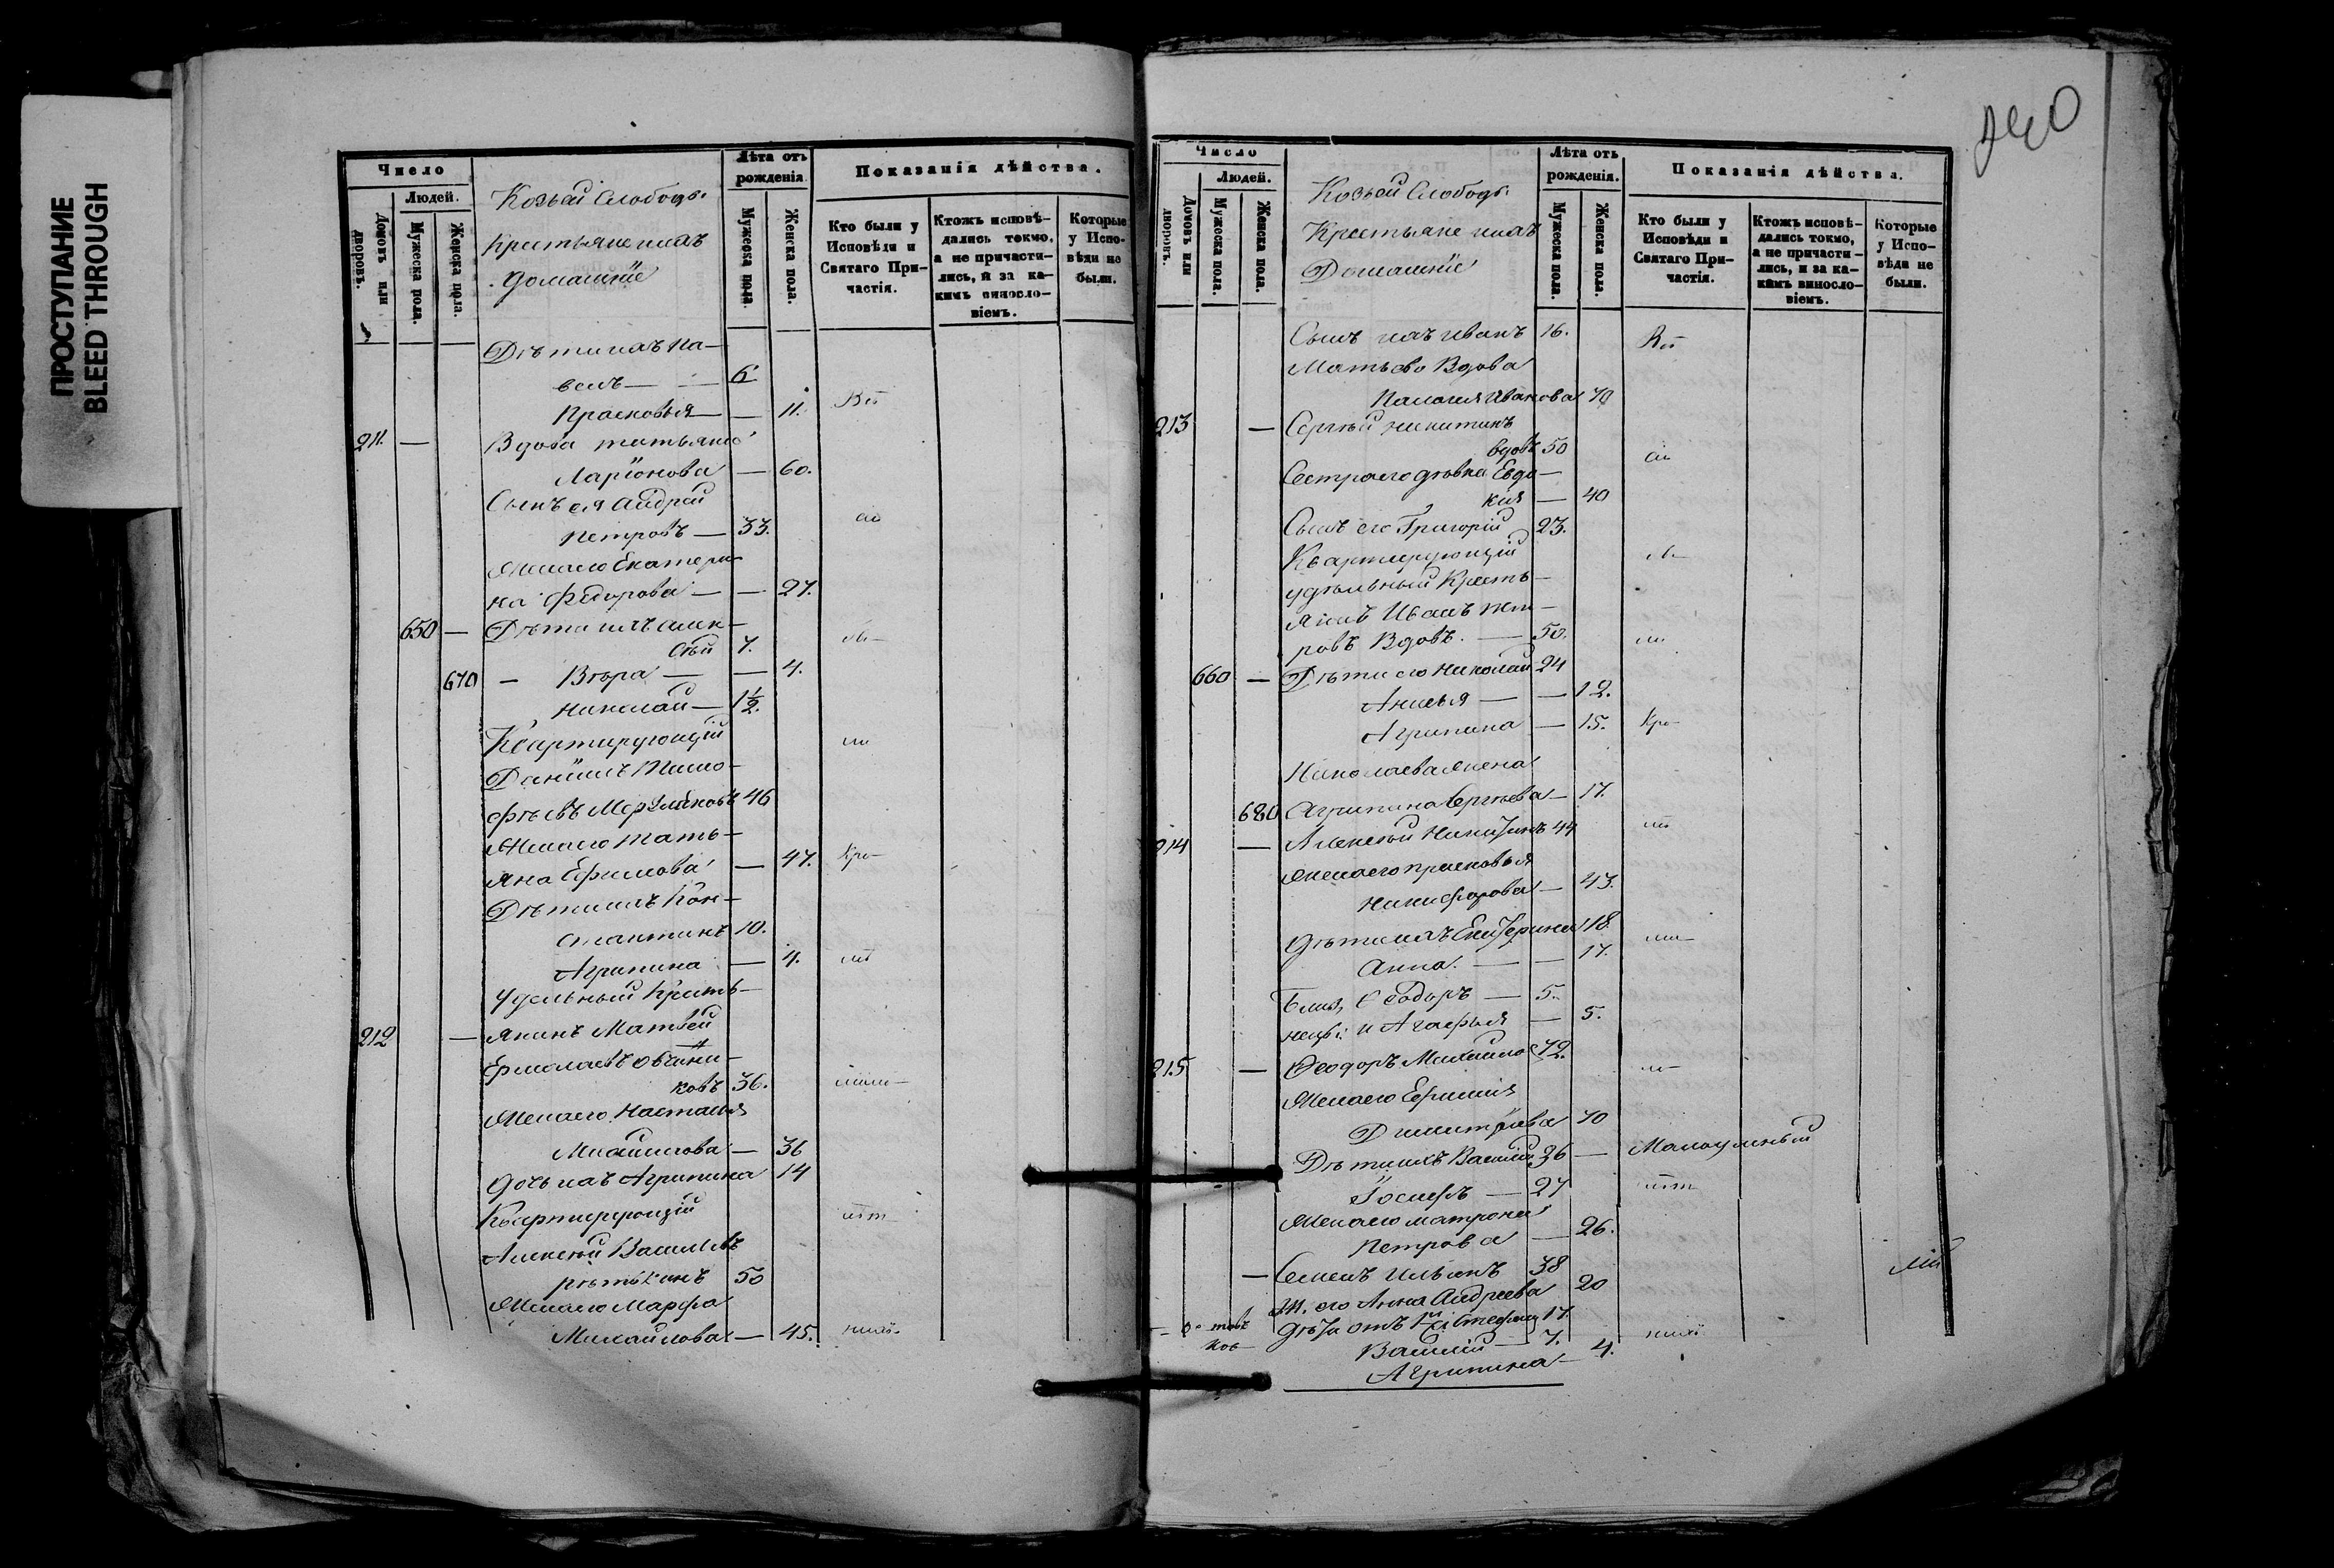 ПРОСТУПАНИЕ
BLEED THROUGH
Число
Людей.
Домовъ или дворовъ.
Мужеска пола.
Женска пола.
Козьей Слободы
Крестьяне ихъ
домашніе
Лѣта отъ рожденія.
Мужеска пола.
Женска пола.
Показанія дѣйства.
Кто были у Исповѣди и Святаго Причастія.
Ктожъ исповѣдались токмо, а не причастились, и за какимъ винословіемъ.
Которые у Исповѣди не были.
Дѣти ихъ Па-
велъ — — 6
Прасковья — — 11.
211. — Вдова Татьяна
Ларіонова — 60.
Сынъ ея Андрей
Петровъ — 33.
Жена его Екатери-
на Федорова — — 27.
650 — Дѣти ихъ Алек-
сѣй 7.
670 — Вѣра — — 4.
Николай — 1½.
Квартирующій
Даніилъ Тимо-
фѣевъ 46
Жена его Тать-
яна Ефимова — 47.
Дѣти ихъ Кон-
стантинъ 10.
Агрипина — 4.
Удельный Кресть-
212 — янинъ Матвей
Ермолаевъ Овчини-
ковъ 36.
Жена его Настасья
Михайлова — 36
Дочь ихъ Агрипина 14
Квартирующій
Алексѣй Васильевъ
50
Жена его Марфа
Михайлова — 45.
240
Число
Людей.
Домовъ или дворовъ.
Мужеска пола.
Женска пола.
Козьей Слободы
Крестьяне ихъ
Домашніе
Лѣта отъ рожденія.
Мужеска пола.
Женска пола.
Показанія дѣйства.
Кто были у Исповѣди и Святаго Причастія.
Ктожъ исповѣдались токмо, а не причастились, и за какимъ винословіемъ.
Которые у Исповѣди не были.
Сынъ ихъ Иванъ 16.
Мать его Вдова
Палагея Иванова 70
213 — Сергѣй Никитинъ
вдовъ 50
Сестра его дѣвка Евдо-
кія — 40
Сынъ его Григорій 23.
Квартирующій
удѣльный Кресть-
янинъ Иванъ Пет-
ровъ Вдовъ. — 50.
660 — Дѣти его Николай 24
Анисья — — 12.
Агрипина — 15.
Николаева жена
680 Агрипина Сергѣева — 17.
214 — Алексѣй Никитинъ 44
Жена его Прасковья
Никифорова — 43.
Дѣти ихъ Екатерина 18.
Анна. — — 17.
Близ, Ѳеодоръ — 5.
нецы: и Агафья — 5.
215 — Ѳеодоръ Михайло 72.
Жена его Ефимия
Димитріева 70
Дѣти ихъ Василій 36 — Малоумный
Іосифъ — 27
Жена его Матрона
Петрова — 26.
— Семенъ Ильинъ 38
Ж. его Анна Андреева 20
Дѣти отъ 1й Стефанъ 17.
Василій — 7.
Агрипина — 4.